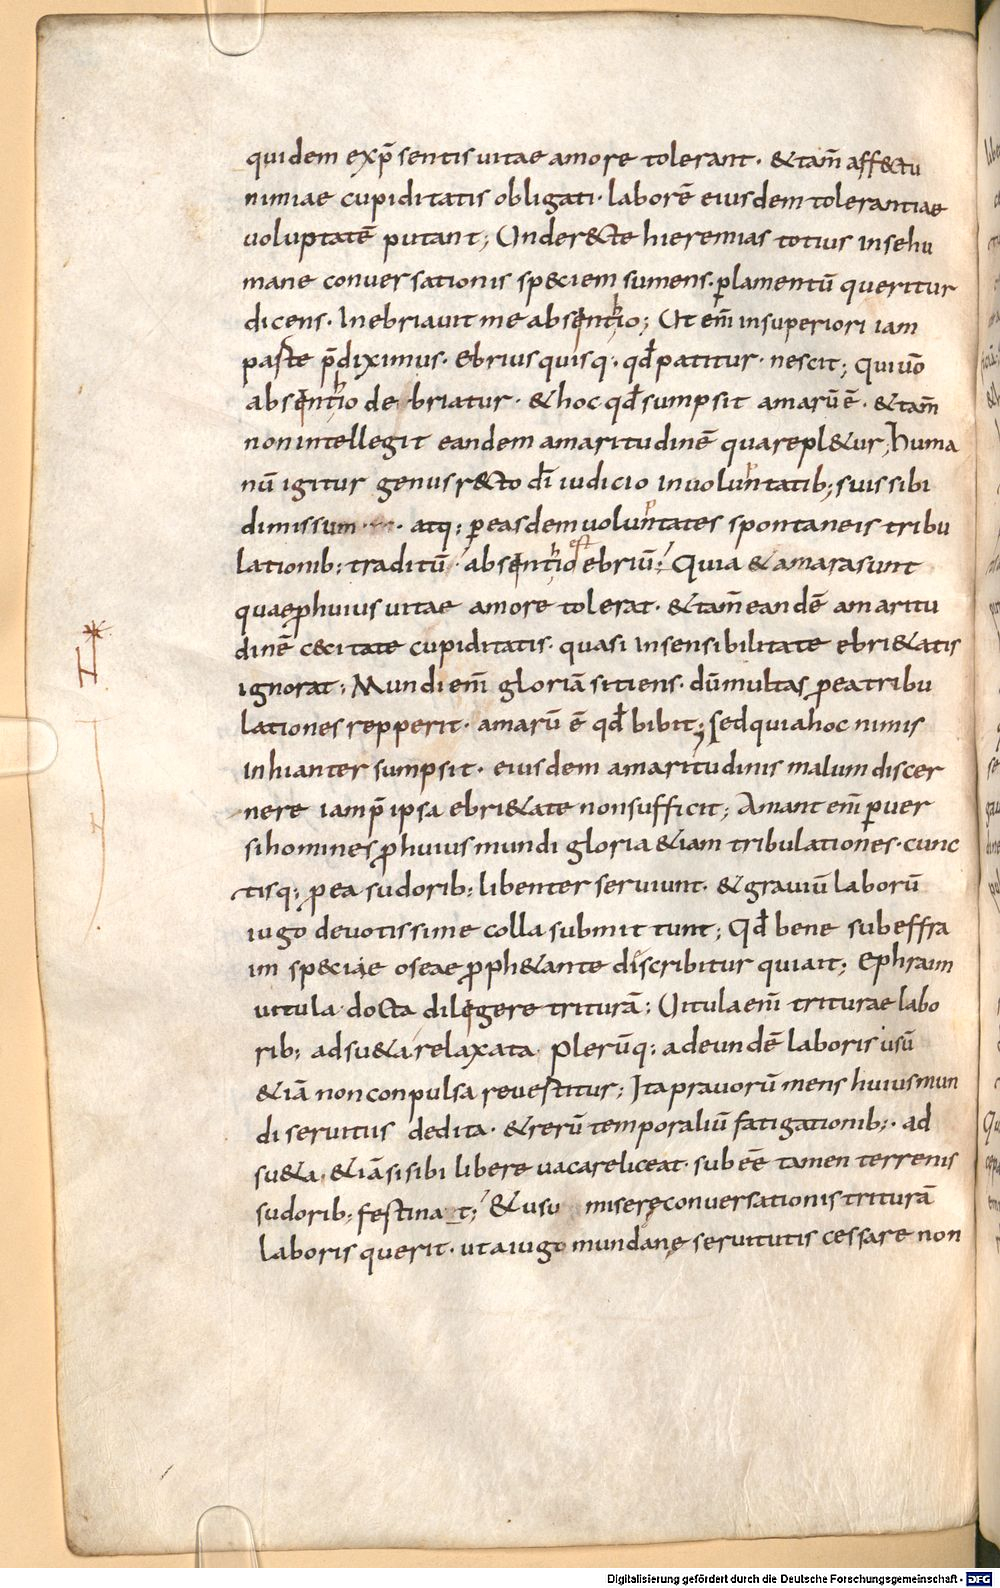 quidem exp̄sentis uitae amore tolerant· &tam̄ affectu
nimiae cupiditatis obligati· laborē eiusdem tolerantiae
uoluptatē putant; Unde recte hieremias totius in se hu
mane conuersationis speciem sumens· p̱ lamentū queritur
dicens· Inebriauit me absentio; Ut em̄ in superiori iam
parte p̄diximus· ebrius quisq· qđ patitur· nescit; qui uō
absentio debriatur· & hoc qđ sumpsit amarū ē· & tam̄
non intellegit eandem amaritudinē qua repl&ur; huma
nū igitur genus recto dī iudicio in uoluntatib; suis sibi
dimissum· atq; p̱ easdem uoluntates spontaneis tribu
lationib; traditū· absentio est ebriū; Quia & amara sunt
quae p̱ huius uitae amore tolerat· & tam̄ eandē amaritu
dinē cecitate cupiditatis· quasi insensibilitate ebri&atis
ignorat; Mundi em̄ gloriā sitiens· dū multas p̱ ea tribu
lationes repperit· amarū ē qđ bibit; sed quia hoc nimis
inhianter sumpsit· eiusdem amaritudinis malum discer
nere iam p̄ ipsa ebri&ate non sufficit; Amant em̄ p̱uer
si homines p̱ huius mundi gloria &iam tribulationes· cunc
tisq; p̱ ea sudorib; libenter seruiunt· & grauiū laborū
iugo deuotissime colla submittunt; Qđ bene sub effra
im speciae oseae p̱ph&ante discribitur qui ait; Ephraim
uitula docta diligere triturā; Uitula em̄ triturae labo
rib; adsu&a relaxata· plerūq; ad eundē laboris usū
&iā non conpulsa reuertitur; Ita prauorū mens huius mun
di seruitus dedita· & rerū temporaliū fatigationib; · ad
su&a· &iā si sibi libere uacare liceat· subēē tamen terrenis
sudorib; festinat; & usu miserę conuersationis triturā
laboris querit· ut a iugo mundanę seruitutis cessare non
Digitalisierung gefördert durch die Deutsche Forschungsgemeinschaft - DFG